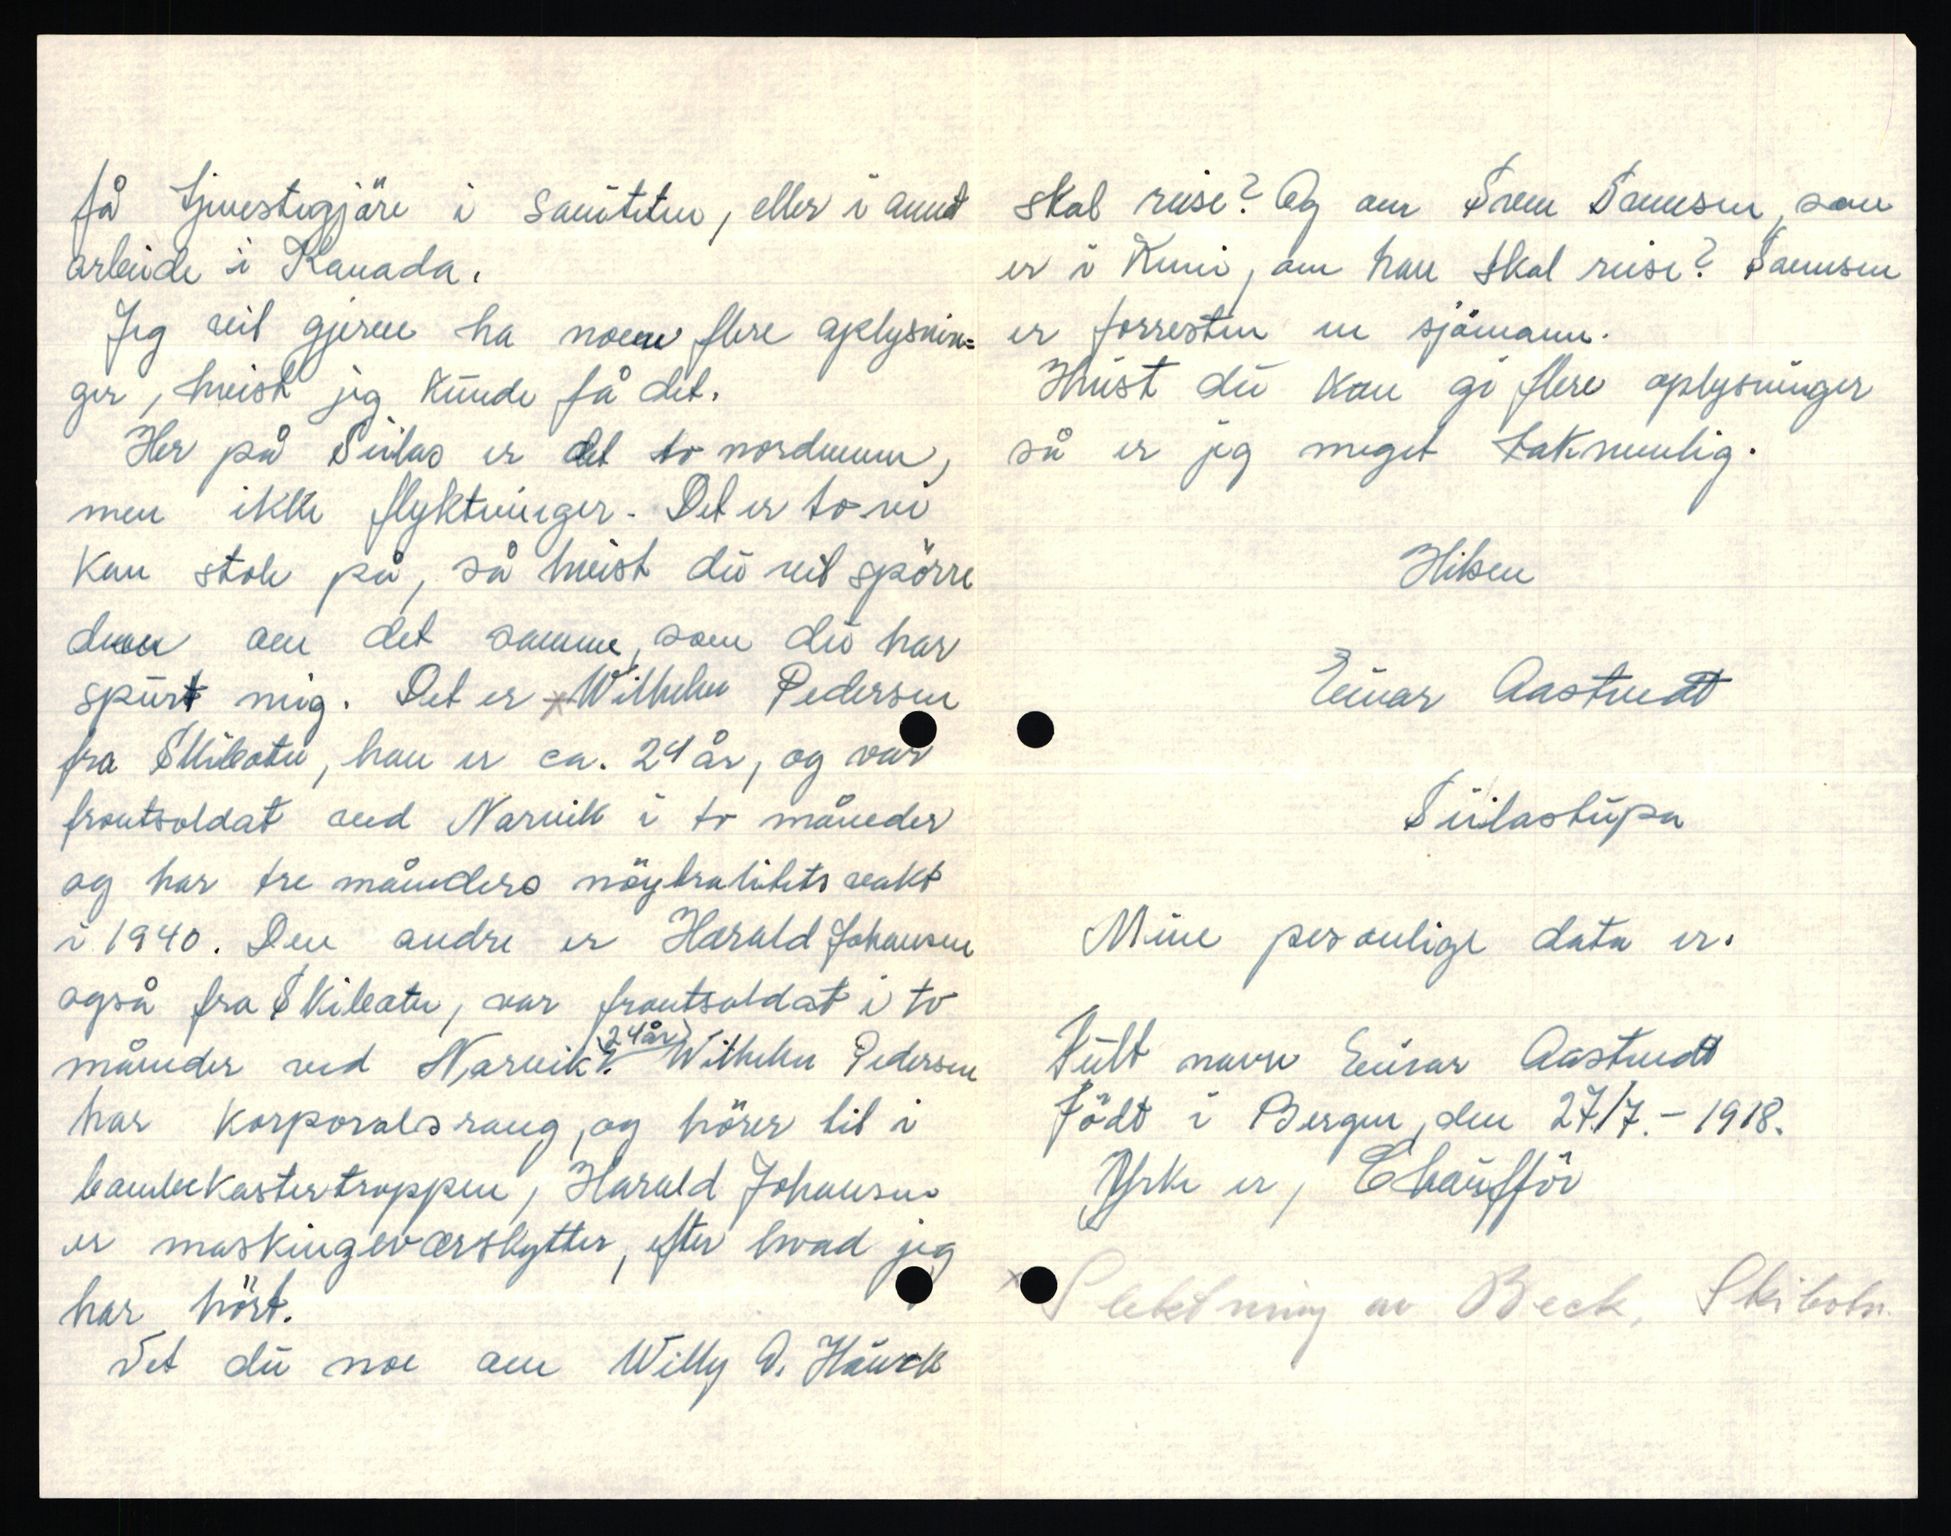 få tjinestegjäre i saniteten, eller i annet
arbeide i Kanada.
Jeg vil gjerne ha noen flere oplysnin=
ger, hvist jeg kunde få det.
Her på Siilas er det to nordmenn,
men ikke flyktninger. Det er to vi
kan stole på, så hvist du vil spörre
dem om det samme, som du har
spurt mig. Det er x Wilhelm Pedersen
fra Skiboten, han er ca. 24 år, og var
frontsoldat ved Narvik i to måneder
og har tre måneders nöytralitets vakt
i 1940. Den andre er Harald Johansen
også fra Skiboten, var frontsoldat i to
måneder ved Narvik (24 år). Wilhelm Pedersen
har korporalsrang, og hörer til i
bombekastertroppen, Harald Johansen
er maskingeværskytter, efter hvad jeg
har hört.
Vet du noe om Willy O. Hauck
skal reise? Og om Sven Samsen, som
er i Kemi, om han skal reise? Samsen
er forresten en sjömann.
Hvist du kan gi flere oplysninger
så er jeg meget taknemlig.
Hilsen
Einar Aastvedt
Siilastupa
Mine pesonlige data er.
Fult navn Einar Aastvedt
Födt i Bergen, den 27/7.-1918.
Yrke er, Chaufför
x Slektning av Beck, Skiboten.